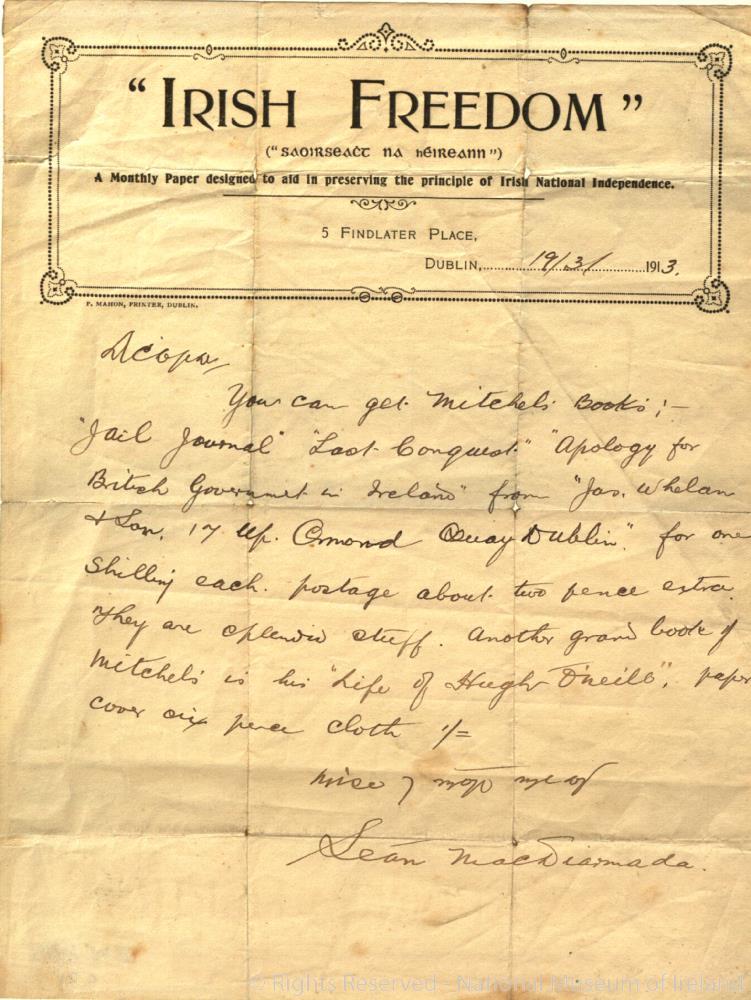 “IRISH FREEDOM”
(“saoirseaċt na héireann”)
A Monthly Paper designed to aid in preserving the principle of Irish National Independence.
5 FINDLATER PLACE,
DUBLIN, 19/3/ 1913.
P. MAHON, PRINTER, DUBLIN.
A ċopa,
You can get Mitchels Books; –
"Jail Journal" "Last Conquest" "Apology for
British Government in Ireland" from "Jas. Whelan
& Son, 17 Up. Ormond Quay Dublin" for one
shilling each. postage about two pence extra.
They are splendid stuff. Another grand book of
Mitchels is his "Life of Hugh O'Neill", paper
cover six pence cloth 1/=
mise
Seán MacDiarmada.
© Rights Reserved - National Museum of Ireland